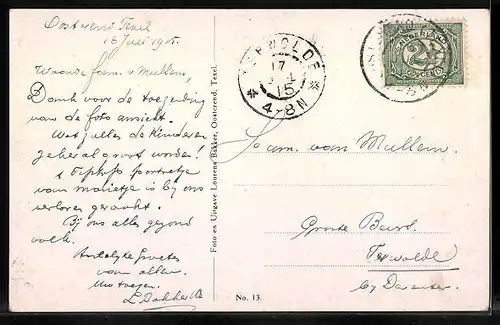 Oosterend Texel
16 Juli 1915.
Waarde fam. v Mullem,
Dank voor de toezending
van de foto ansicht.
Wat zullen de kinderen
geheel groot worden!
't portretje
van malietje is bij ons
verloren geraakt.
Bij ons alles gezond
volk.
Hartelijke Groeten
van allen.
Uw toegen.
L Bakker
Foto en Uitgave Lourens Bakker, Oosterend, Texel.
No. 13.
TERWOLDE
17
15
4-8N
NEDERLAND
2½
CENT
Fam. van Mullem.
Groote Buurt.
Terwolde
bij Deventer